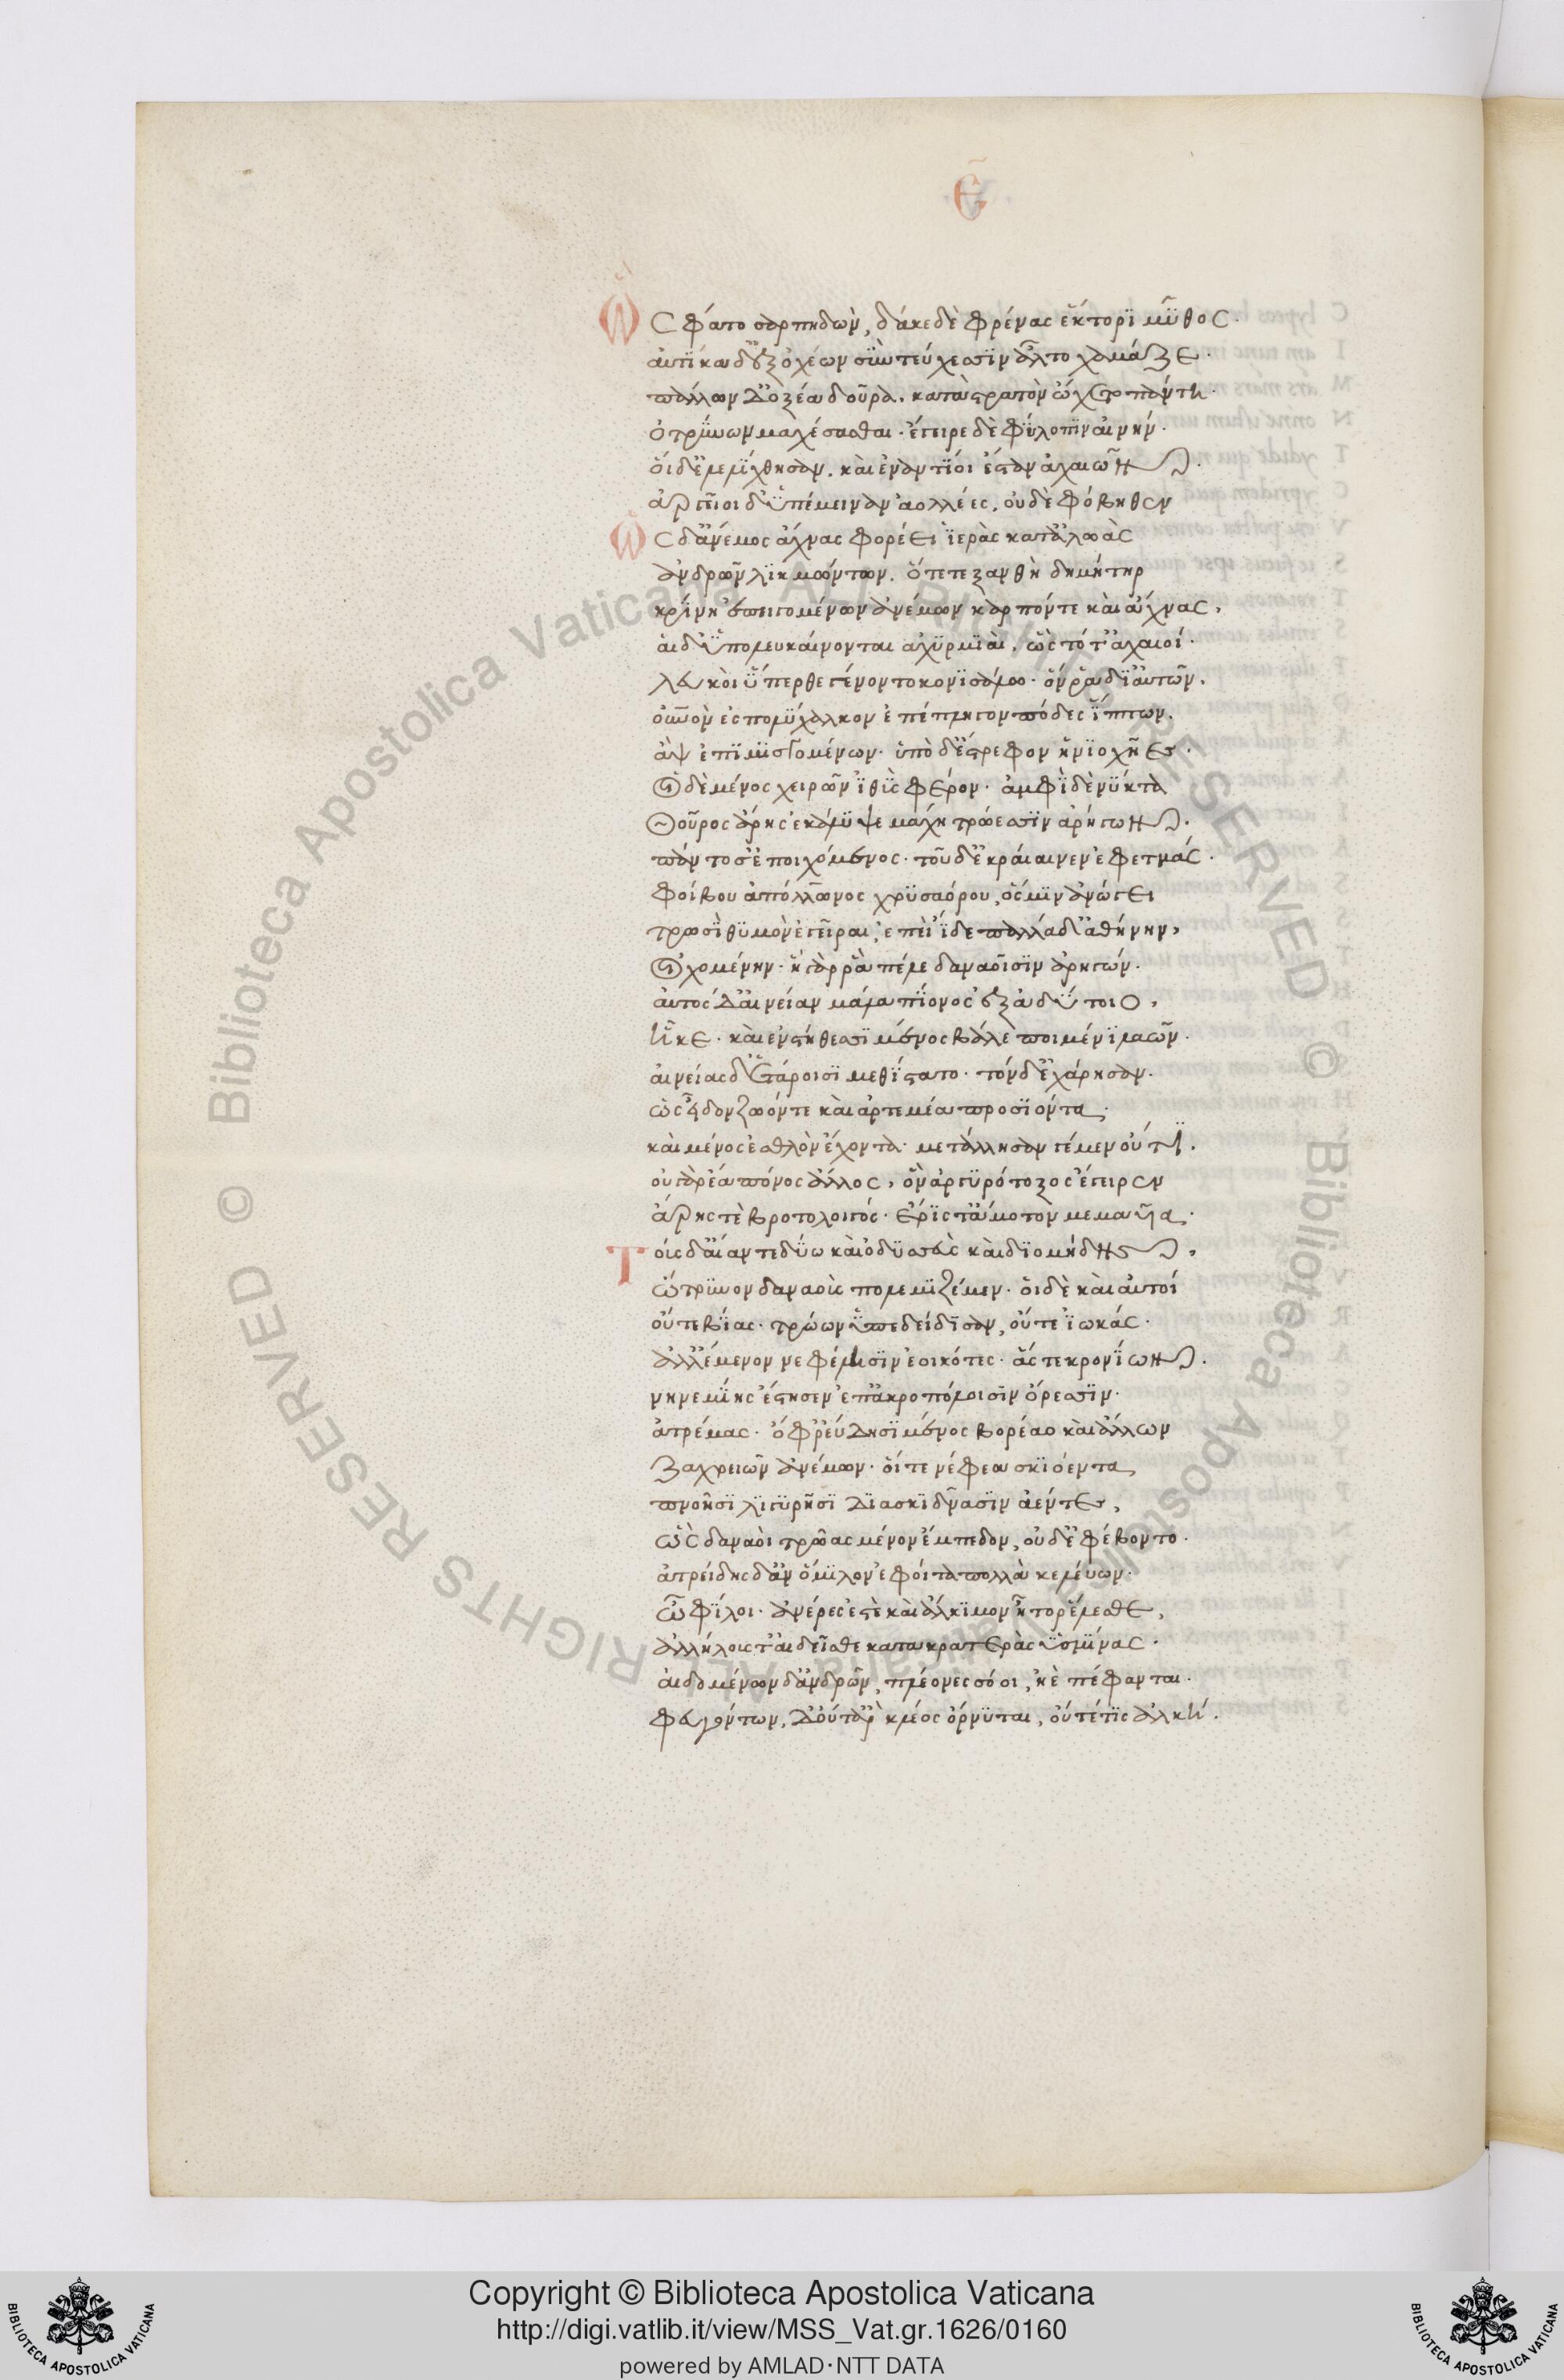 Ε
Ὣς φάτο σαρπηδὼν, δάκε δὲ φρένας ἕκτορϊ μῦθος.
ἀυτίκα δ' ἐξ ὀχέων σὺν τεύχεσϊν ἆλτο χαμᾶζε.
πάλλων δ' ὀξέα δοῦρα. κατὰ στρατὸν ὤχετο πάντη.
ὀτρύνων μαχέσασθαι. ἔγειρε δὲ φύλοπϊν αἰνήν.
ὅι δ' ἐλελίχθησαν. καὶ ἐναντίοι ἔσταν ἀχαιῶν.
ἀργεῖοι δ' ὑπέμειναν ἀολλέες, οὐδὲ φόβηθεν
Ὡς δ' ἄνεμος ἄχνας φορέει ἱερὰς κατ' ἀλωὰς
ἀνδρῶν λικμώντων. ὅτε τε ξανθὴ δημήτηρ
κρίνη ἐπειγομένων ἀνέμων καρπόν τε καὶ ἄχνας,
ἁι δ' ὑπολευκάινονται ἀχυρμϊαὶ. ὣς τότ' ἀχαιοί.
λευκὸι ὕπερθε γένοντο κονϊσάλω. ὅν ῥα δϊ' ἀυτῶν.
οὐρανὸν ἐς πολύχαλκον ἐπέπληγον πόδες ἵππων.
ἂψ ἐπιμισγομένων. ὑπὸ δ' ἔστρεφον ἡνϊοχῆες.
ὁι δὲ μένος χειρῶν ἰθὺς φέρον. ἀμφὶ δὲ νύκτα
θοῦρος ἄρης ἐκάλυψε μάχη τρώεσσϊν ἀρήγων.
πάντοσ' ἐποιχόμενος. τοῦ δ' ἐκράιαινεν ἐφετμάς.
φοίβου ἀπόλλωνος χρυσαόρου, ὅς μϊν ἀνώγει
τρωσὶ θυμὸν ἐγεῖραι, ἐπεὶ ἴδε παλλάδ' ἀθήνην,
ὀιχομένην. ἡ γὰρ ῥα πέλε δαναοῖσϊν ἀρηγών.
ἀυτὸς δ' ἀινείαν μάλα πίονος ἐξ ἀδύτοιο,
ἧκε. καὶ ἐν στήθεσσϊ μένος βάλε ποιμένϊ λαῶν.
ἀινείας δ' ἑτάροισϊ μεθίστατο. τὸν δ' ἐχάρησαν.
ὡς εἶδον ζωόν τε καὶ ἀρτεμέα προσϊόντα.
καὶ μένος ἐσθλὸν ἔχοντα. μετάλλησαν γέμεν οὔ τϊ.
οὐ γὰρ ἔα πόνος ἄλλος, ὃν ἀργυρότοξος ἔγειρεν
ἄρης τὲ βροτολοιγός. ἔρϊς τ' ἄμοτον μεμαυῖα.
Τοὺς δ' ἄιαντε δύω καὶ ὀδυσσεὺς καὶ δϊομήδης,
ὤτρυνον δαναοὺς πολεμϊζέμεν. ὁι δὲ καὶ ἀυτοί
οὔτε βίας. τρώων ὑπεδείδϊσαν, οὔτε ἰωκάς.
ἀλλ' ἔμενον νεφέλησϊν ἐοικότες. ἅς τε κρονίων.
νηνεμίης ἔστησεν ἐπ' ἀκροπόλοισϊν ὄρεσσϊν.
ἀτρέμας. ὄφρ' εὕδησϊ μένος βορέαο καὶ ἄλλων
ζαχρειῶν ἀνέμων. ὅι τε νέφεα σκϊόεντα
πνοιῆσϊ λϊγυρῆσϊ δϊασκιδνᾶσϊν ἀέντες,
ὣς δαναὸι τρῶας μένον ἔμπεδον, οὐδ' ἐφέβοντο.
ἀτρείδης δ' ἀν' ὅμϊλον ἐφοίτα πολλὰ κελέυων.
ὦ φίλοι. ἀνέρες ἐστὲ καὶ ἄλκϊμον ἦτορ ἕλεσθε,
ἀλλήλους τ' ἀιδεῖσθε κατα κρατερὰς ὑσμίνας.
ἀιδομένων δ' ἀνδρῶν, πλέονες σόοι, ἠὲ πέφανται.
φευγόντων, δ' οὔτ' ἄρ κλέος ὄρνυται, οὔτέ τϊς ἀλκή.
© Biblioteca Apostolica Vaticana ALL RIGHTS RESERVED © Biblioteca Apostolica Vaticana ALL RIGHTS RESERVED
Copyright © Biblioteca Apostolica Vaticana
http://digi.vatlib.it/view/MSS_Vat.gr.1626/0160
powered by AMLAD·NTT DATA
BIBLIOTECA APOSTOLICA VATICANA
BIBLIOTECA APOSTOLICA VATICANA